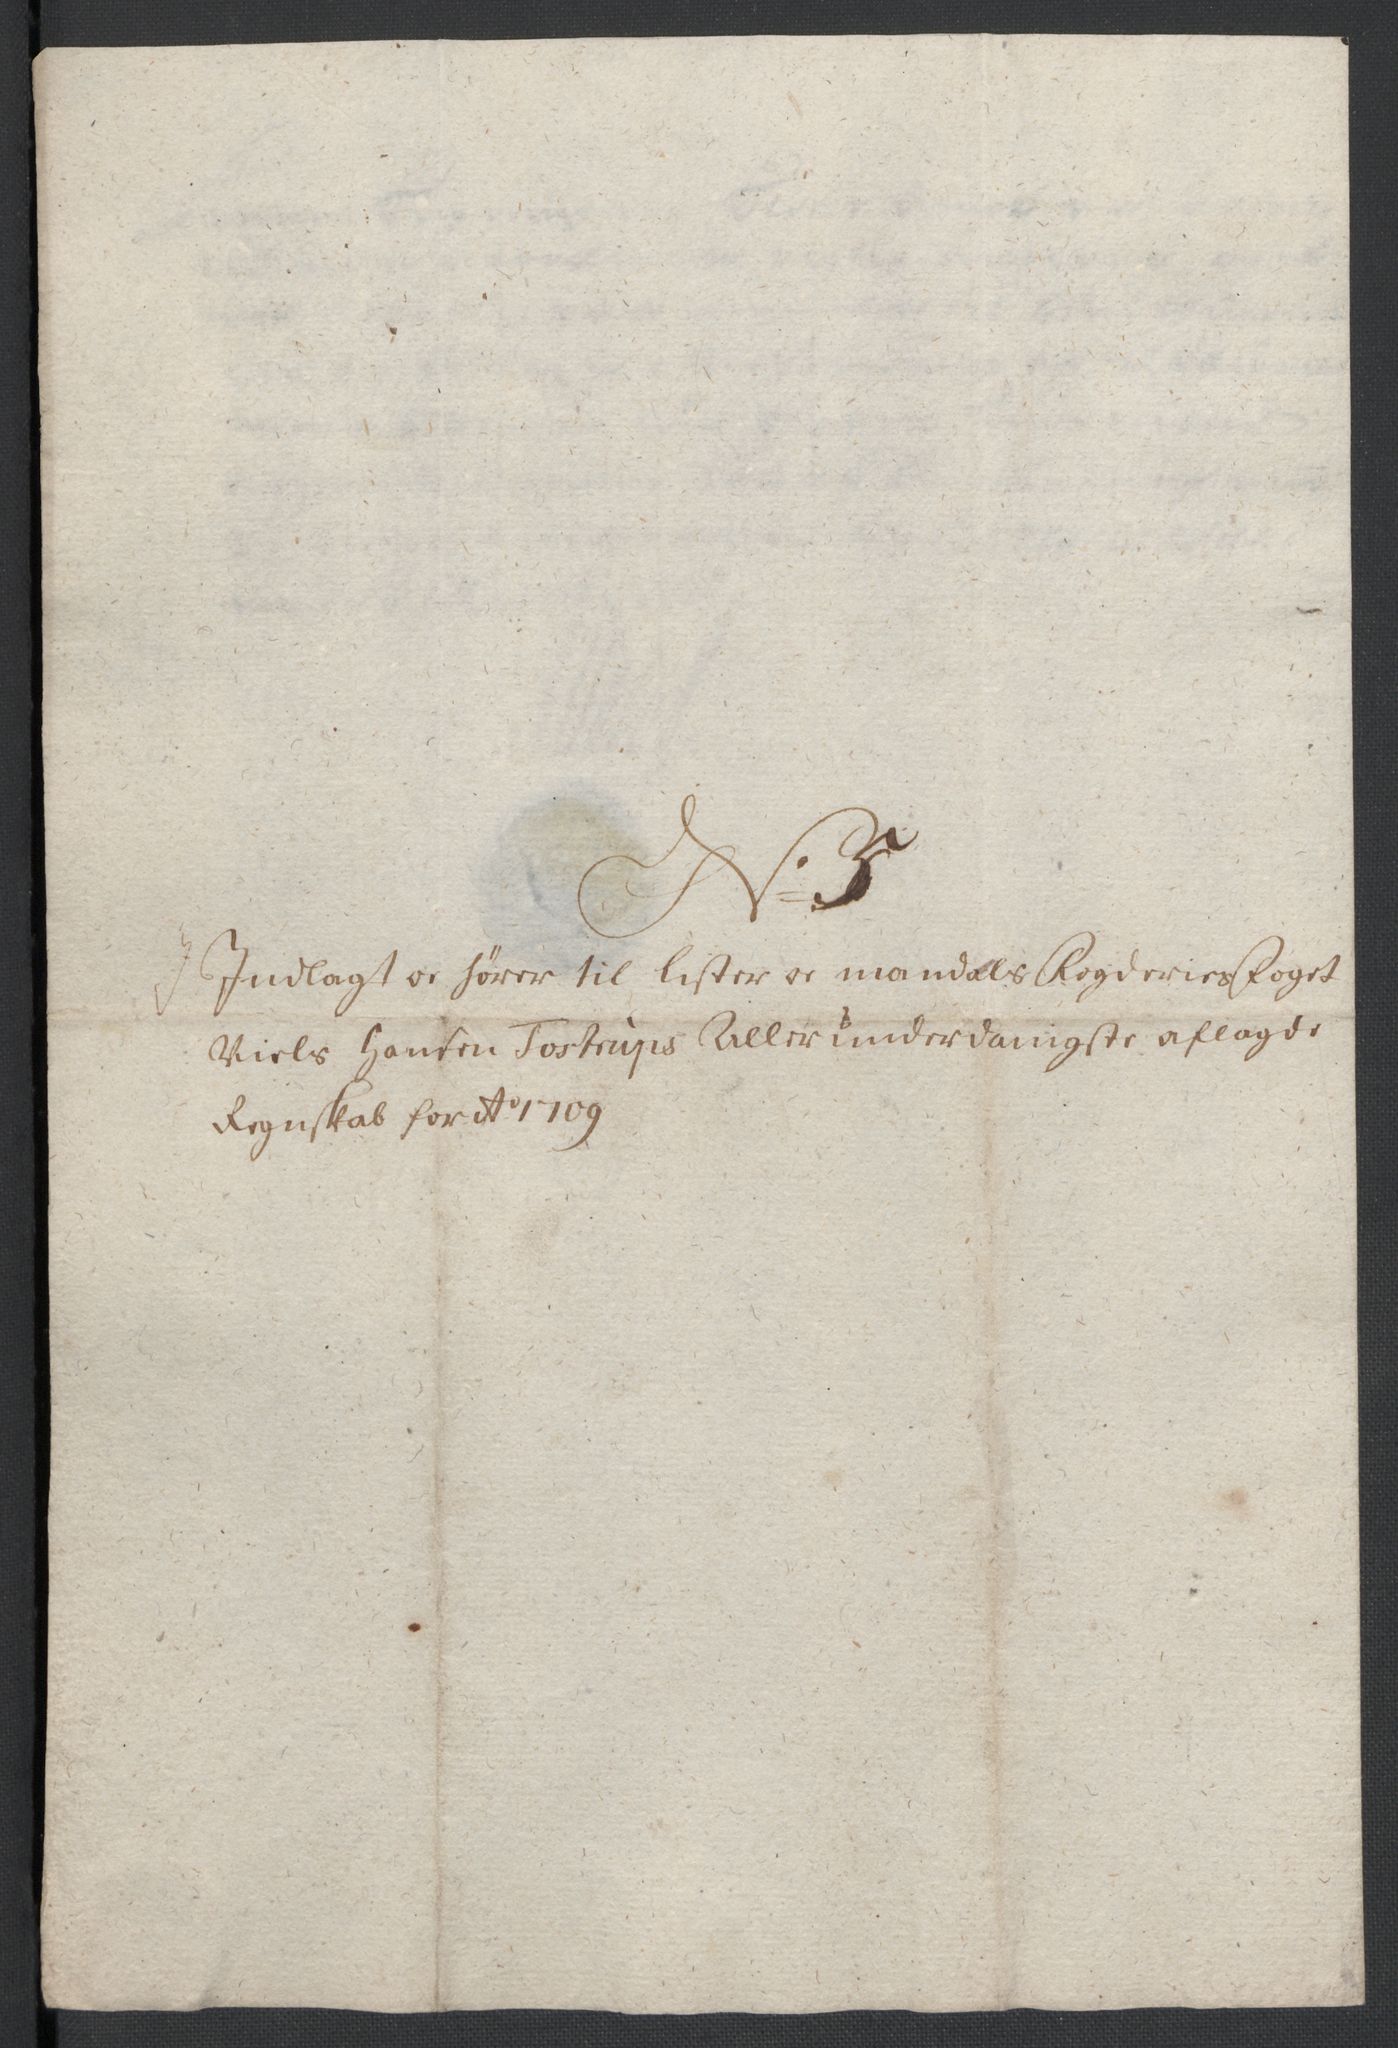 No: 5
Indlagt oc hörer til Lister oc mandals Fogderies Foget
Niels Hansen Tostrups Allerunderdanigste aflagde
Regnskab for Ao 1709